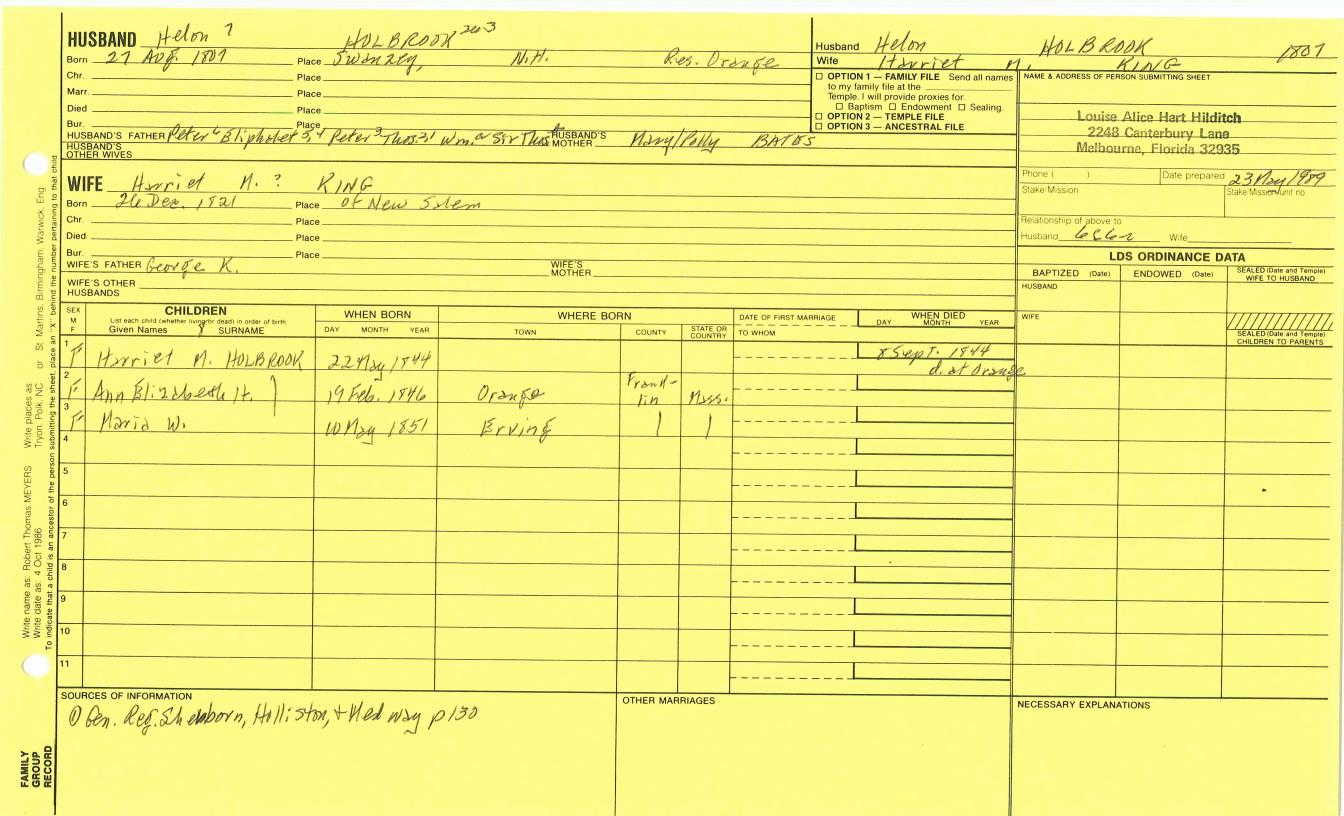 HUSBAND Helon 7 HOLBROOK 263
Born 27 Aug. 1807 Place Swanzey, N.H. Res. Orange
Chr. Place
Marr. Place
Died Place
Bur. Place
HUSBAND'S FATHER Peter 6 Eliphalet 5, 4 Peter 3 Thos. 2, 1 Wm. or Sir Thos. HUSBAND'S MOTHER Mary/Polly BATES
HUSBAND'S OTHER WIVES
WIFE Harriet M. ? KING
Born 26 Dec. 1821 Place of New Salem
Chr. Place
Died Place
Bur. Place
WIFE'S FATHER George K. WIFE'S MOTHER
WIFE'S OTHER HUSBANDS
Husband Helon HOLBROOK 1807
Wife Harriet M. KING
OPTION 1 — FAMILY FILE Send all names
to my family file at the
Temple. I will provide proxies for
Baptism Endowment Sealing.
OPTION 2 — TEMPLE FILE
OPTION 3 — ANCESTRAL FILE
NAME & ADDRESS OF PERSON SUBMITTING SHEET
Louise Alice Hart Hilditch
2248 Canterbury Lane
Melbourne, Florida 32935
Phone ( ) Date prepared 23 May 1989
Stake/Mission Stake/Mission unit no
Relationship of above to
Husband 6C6r Wife
LDS ORDINANCE DATA
BAPTIZED (Date) ENDOWED (Date) SEALED (Date and Temple) WIFE TO HUSBAND
HUSBAND
WIFE
SEALED (Date and Temple) CHILDREN TO PARENTS
SEX M F
CHILDREN
List each child (whether living or dead) in order of birth
Given Names SURNAME
WHEN BORN
DAY MONTH YEAR
WHERE BORN
TOWN COUNTY STATE OR COUNTRY
DATE OF FIRST MARRIAGE
TO WHOM
WHEN DIED
DAY MONTH YEAR
1 F Harriet M. HOLBROOK 22 May 1844 8 Sept. 1844
d. at Orange
2 F Ann Elizabeth H. 19 Feb. 1846 Orange Franklin Mass.
3 F Maria W. 10 May 1851 Erving
4
5
6
7
8
9
10
11
SOURCES OF INFORMATION
① Gen. Reg. Sherborn, Holliston, + Medway p 130
OTHER MARRIAGES
NECESSARY EXPLANATIONS
Write name as: Robert Thomas MEYERS Write places as
Write date as: 4 Oct 1986 Tryon, Polk, NC or St Martins, Birmingham, Warwick, Eng
To indicate that a child is an ancestor of the person submitting the sheet, place an "X" behind the number pertaining to that child
FAMILY
GROUP
RECORD